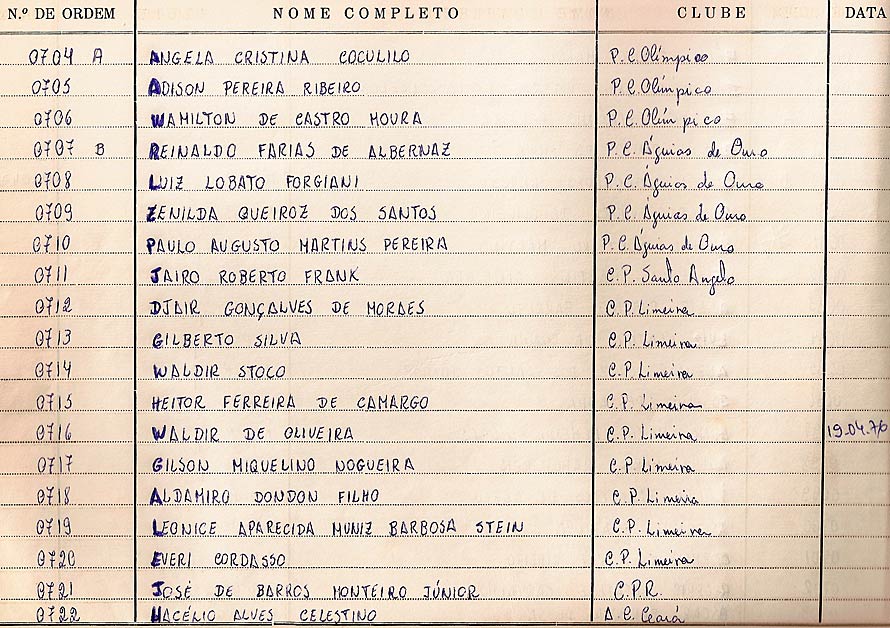 N.º DE ORDEM NOME COMPLETO CLUBE DATA
0704 A ANGELA CRISTINA COCULILO P. C. Olímpico
0705 ADISON PEREIRA RIBEIRO P. C. Olímpico
0706 WAMILTON DE CASTRO MOURA P. C. Olímpico
0707 B REINALDO FARIAS DE ALBERNAZ P. C. Águias de Ouro
0708 LUIZ LOBATO FORGIANI P. C. Águias de Ouro
0709 ZENILDA QUEIROZ DOS SANTOS P. C. Águias de Ouro
0710 PAULO AUGUSTO MARTINS PEREIRA P. C. Águias de Ouro
0711 JAIRO ROBERTO FRANK C. P. Santo Angelo
0712 DJAIR GONÇALVES DE MORAES C. P. Limeira
0713 GILBERTO SILVA C. P. Limeira
0714 WALDIR STOCO C. P. Limeira
0715 HEITOR FERREIRA DE CAMARGO C. P. Limeira
0716 WALDIR DE OLIVEIRA C. P. Limeira 19.04.76
0717 GILSON MIQUELINO NOGUEIRA C. P. Limeira
0718 ALDAMIRO DONDON FILHO C. P. Limeira
0719 LEONICE APARECIDA MUNIZ BARBOSA STEIN C. P. Limeira
0720 EVERI CORDASSO C. P. Limeira
0721 JOSÉ DE BARROS MONTEIRO JÚNIOR C. P. R.
0722 MACÉLIO ALVES CELESTINO A. C. Ceará